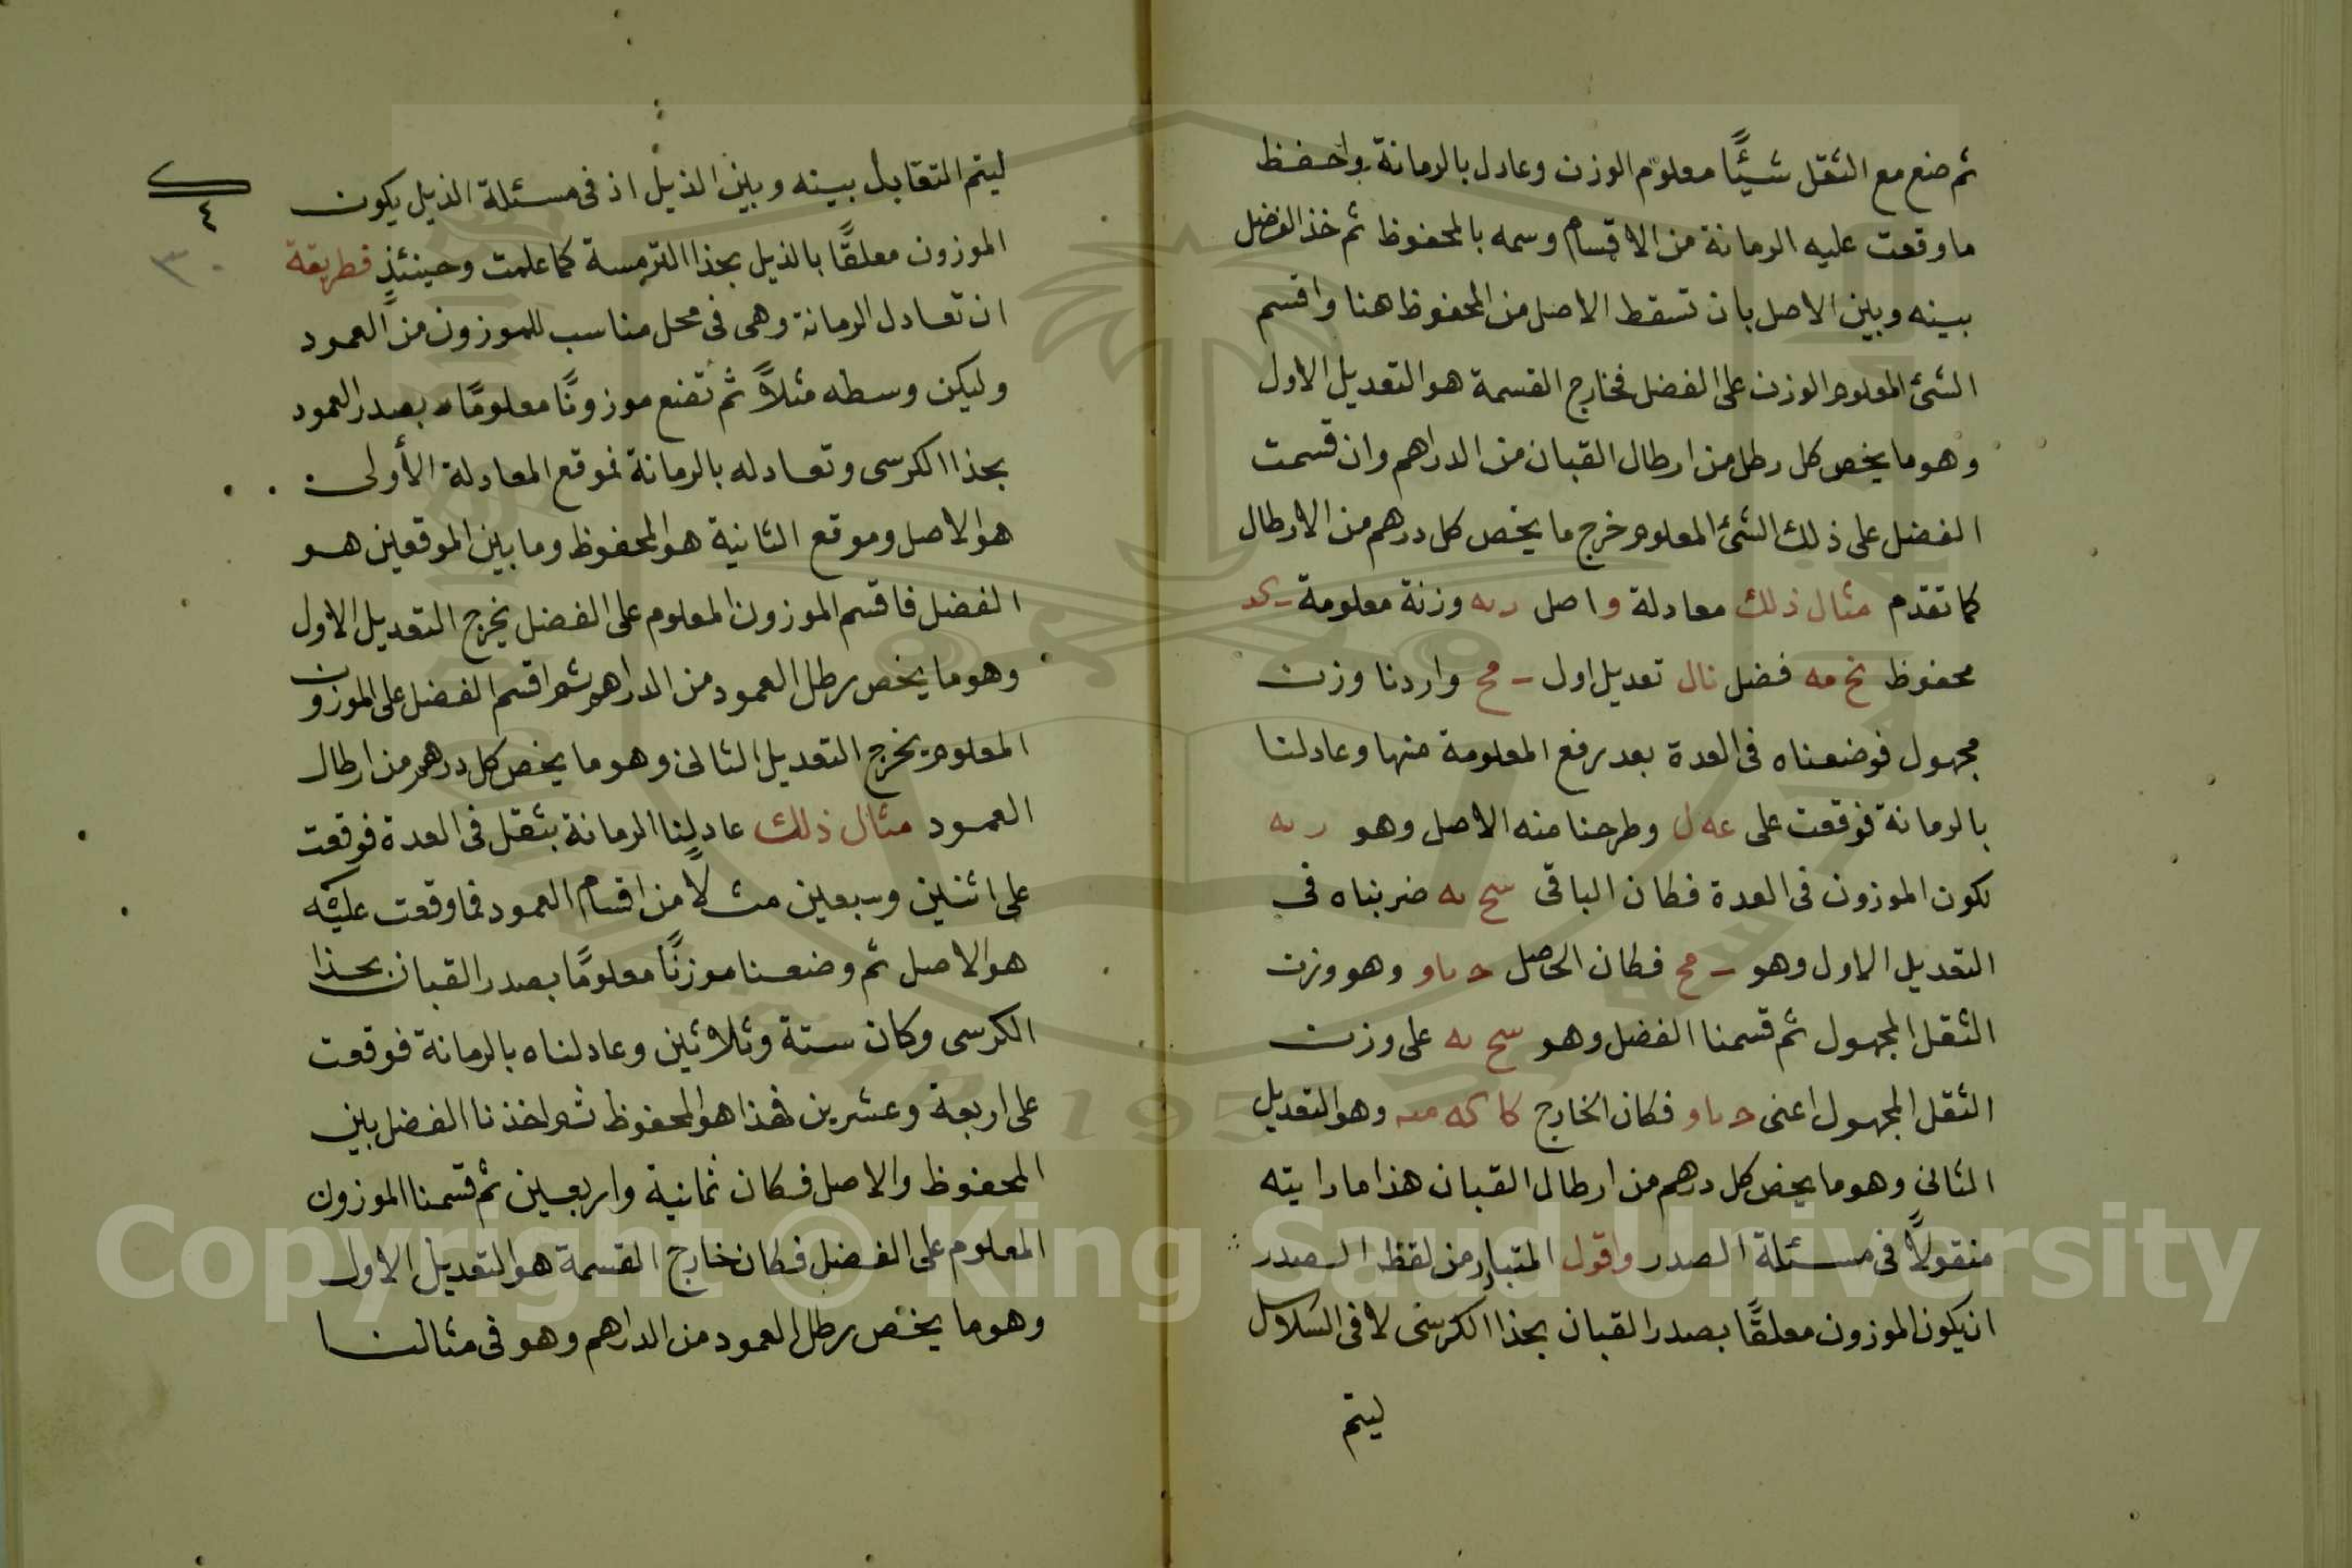 ثم ضع مع الثقل شيئًا معلوم الوزن وعادل بالرمانة واحفظ
ما وقعت عليه الرمانة من الاقسام وسمه بالمحفوظ ثم خذ الفضل
بينه وبين الاصل بان تسقط الاصل من المحفوظ هنا واقسم
الشئ المعلوم الوزن على الفضل فخارج القسمة هو التعديل الاول
وهو ما يخص كل رطل من ارطال القبان من الدراهم وان قسمت
الفضل على ذلك الشئ المعلوم خرج ما يخص كل درهم من الارطال
كما تقدم مثال ذلك معادلة واصل وزنة معلومة
محفوظ نح مه فضل تعديل اول مح واردنا وزن
مجهول فوضعناه فى العدة بعد رفع المعلومة منها وعادلنا
بالرمانة فوقعت على وطرحنا منه الاصل وهو
لكون الموزون فى العدة فكان الباقى ضربناه فى
التعديل الاول وهو مح فكان الحاصل وهو وزن
الثقل المجهول ثم قسمنا الفضل وهو على وزن
الثقل المجهول اعنى فكان الخارج وهو التعديل
الثانى وهو ما يخص كل درهم من ارطال القبان هذا ما رايته
منقولًا فى مسئلة الصدر واقول المتبادر من لفظ الصدر
ان يكون الموزون معلقًا بصدر القبان بحذا الكرسى لا فى السلاسل
ليتم
ليتم التقابل بينه وبين الذيل اذ فى مسئلة الذيل يكون
٤
الموزون معلقًا بالذيل بحذا الترمسة كما علمت وحينئذٍ فطريقة
٣٠
ان تعادل الرمانة وهى فى محل مناسب للموزون من العمود
وليكن وسطه مثلاً ثم تضع موزونًا معلومًا بصدر العمود
بحذا الكرسى وتعادله بالرمانة فموقع المعادلة الأولى
هو الاصل وموقع الثانية هو المحفوظ وما بين الموقعين هو
الفضل فاقسم الموزون المعلوم على الفضل يخرج التعديل الاول
وهو ما يخص رطل العمود من الدراهم ثم اقسم الفضل على الموزون
المعلوم يخرج التعديل الثانى وهو ما يخص كل درهم من ارطال
العمود مثال ذلك عادلنا الرمانة بثقل فى العدة فوقعت
على اثنين وسبعين مثلاً من اقسام العمود فما وقعت عليه
هو الاصل ثم وضعنا موزنًا معلومًا بصدر القبان بحذا
الكرسى وكان ستة وثلاثين وعادلناه بالرمانة فوقعت
على اربعة وعشرين فهذا هو المحفوظ ثم اخذنا الفضل بين
المحفوظ والاصل فكان ثمانية واربعين ثم قسمنا الموزون
المعلوم على الفضل فكان خارج القسمة هو التعديل الاول
وهو ما يخص رطل العمود من الدراهم وهو فى مثالنا
Copyright © King Saud University
1957